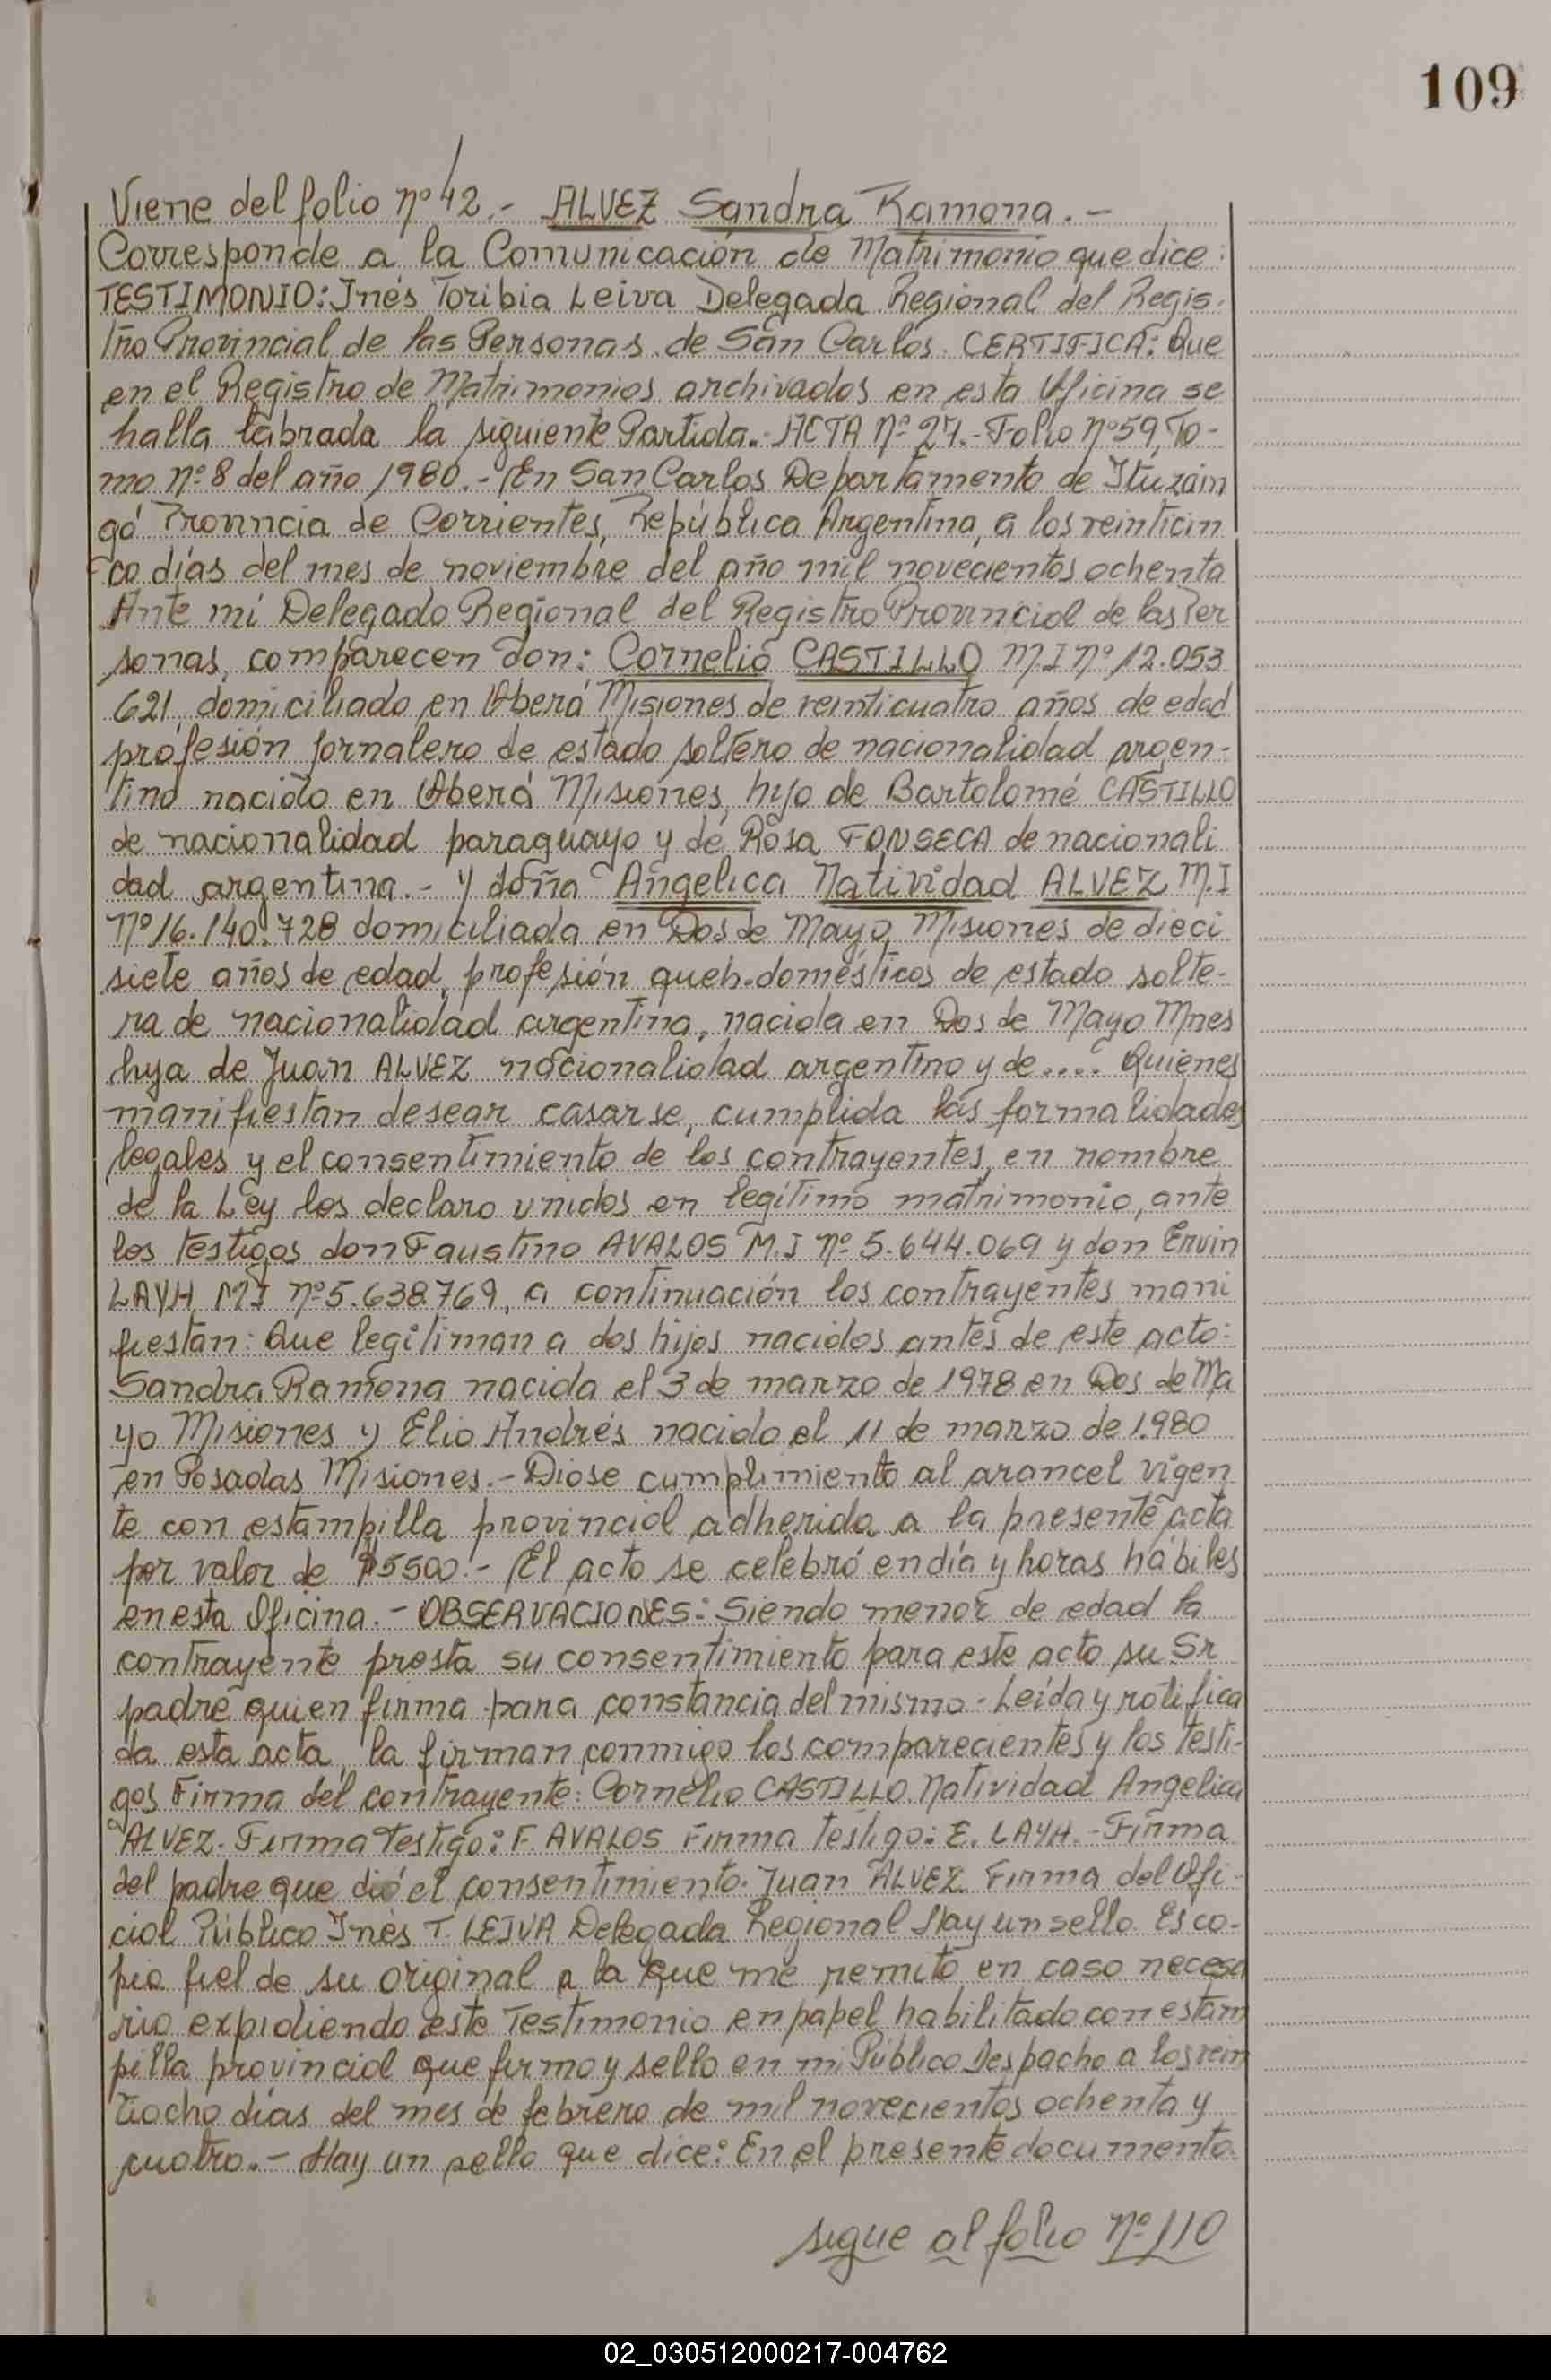 109
Viene del folio nº 42.- ALVEZ Sandra Ramona.-
Corresponde a la Comunicación de Matrimonio que dice:
TESTIMONIO: Inés Toribia Leiva Delegada Regional del Regis-
tro Provincial de las Personas de San Carlos. CERTIFICA: Que
en el Registro de Matrimonios archivados en esta Oficina se
halla labrada la siguiente Partida.- ACTA Nº 27.- Folio nº 59, To-
mo nº 8 del año 1980.- En San Carlos Departamento de Ituzain
gó Provincia de Corrientes, República Argentina, a los veinticin
co días del mes de noviembre del año mil novecientos ochenta
Ante mí Delegado Regional del Registro Provincial de las Per
sonas, comparecen don: Cornelio CASTILLO MI nº 12.053
621, domiciliado en Oberá Misiones de veinticuatro años de edad
profesión jornalero de estado soltero de nacionalidad argen-
tino nacido en Oberá Misiones, hijo de Bartolomé CASTILLO
de nacionalidad paraguayo y de Rosa FONSECA de nacionali
dad argentina.- y doña Angelica Natividad ALVEZ M.I
Nº 16.140.728 domiciliada en Dos de Mayo, Misiones de dieci
siete años de edad, profesión queh.domésticos de estado solte-
ra de nacionalidad argentina, nacida en Dos de Mayo Mnes
hija de Juan ALVEZ nacionalidad argentino y de.... Quienes
manifiestan desear casarse, cumplida las formalidades
legales y el consentimiento de los contrayentes, en nombre
de la Ley los declaro unidos en legítimo matrimonio, ante
los testigos don Faustino AVALOS M.I nº 5.644.069 y don Ervin
LAYH MI nº 5.638.769, a continuación los contrayentes mani
fiestan: Que legitiman a dos hijos nacidos antes de este acto:
Sandra Ramona nacida el 3 de marzo de 1978 en Dos de Ma
yo Misiones y Elio Andrés nacido el 11 de marzo de 1.980
en Posadas Misiones.- Diose cumplimiento al arancel vigen
te con estampilla provincial adherida a la presente acta
por valor de $5500.- El acto se celebró en día y horas hábiles
en esta Oficina.- OBSERVACIONES: Siendo menor de edad la
contrayente presta su consentimiento para este acto su Sr
padre quien firma para constancia del mismo.- Leída y ratifica
da esta acta, la firman conmigo los comparecientes y los testi-
gos Firma del contrayente: Cornelio CASTILLO. Natividad Angelica
ALVEZ. Firma testigo: F. AVALOS Firma testigo: E. LAYH.- Firma
del padre que dió el consentimiento. Juan ALVEZ Firma del Ofi-
cial Público Inés T. LEIVA Delegada Regional Hay un sello. Es co-
pia fiel de su original a la que me remito en caso necesa
rio expidiendo este Testimonio en papel habilitado con estam
pilla provincial que firmo y sello en mi Público Despacho a los vein
tiocho días del mes de febrero de mil novecientos ochenta y
cuatro.- Hay un sello que dice: En el presente documento.
sigue al folio nº 110
02_030512000217-004762